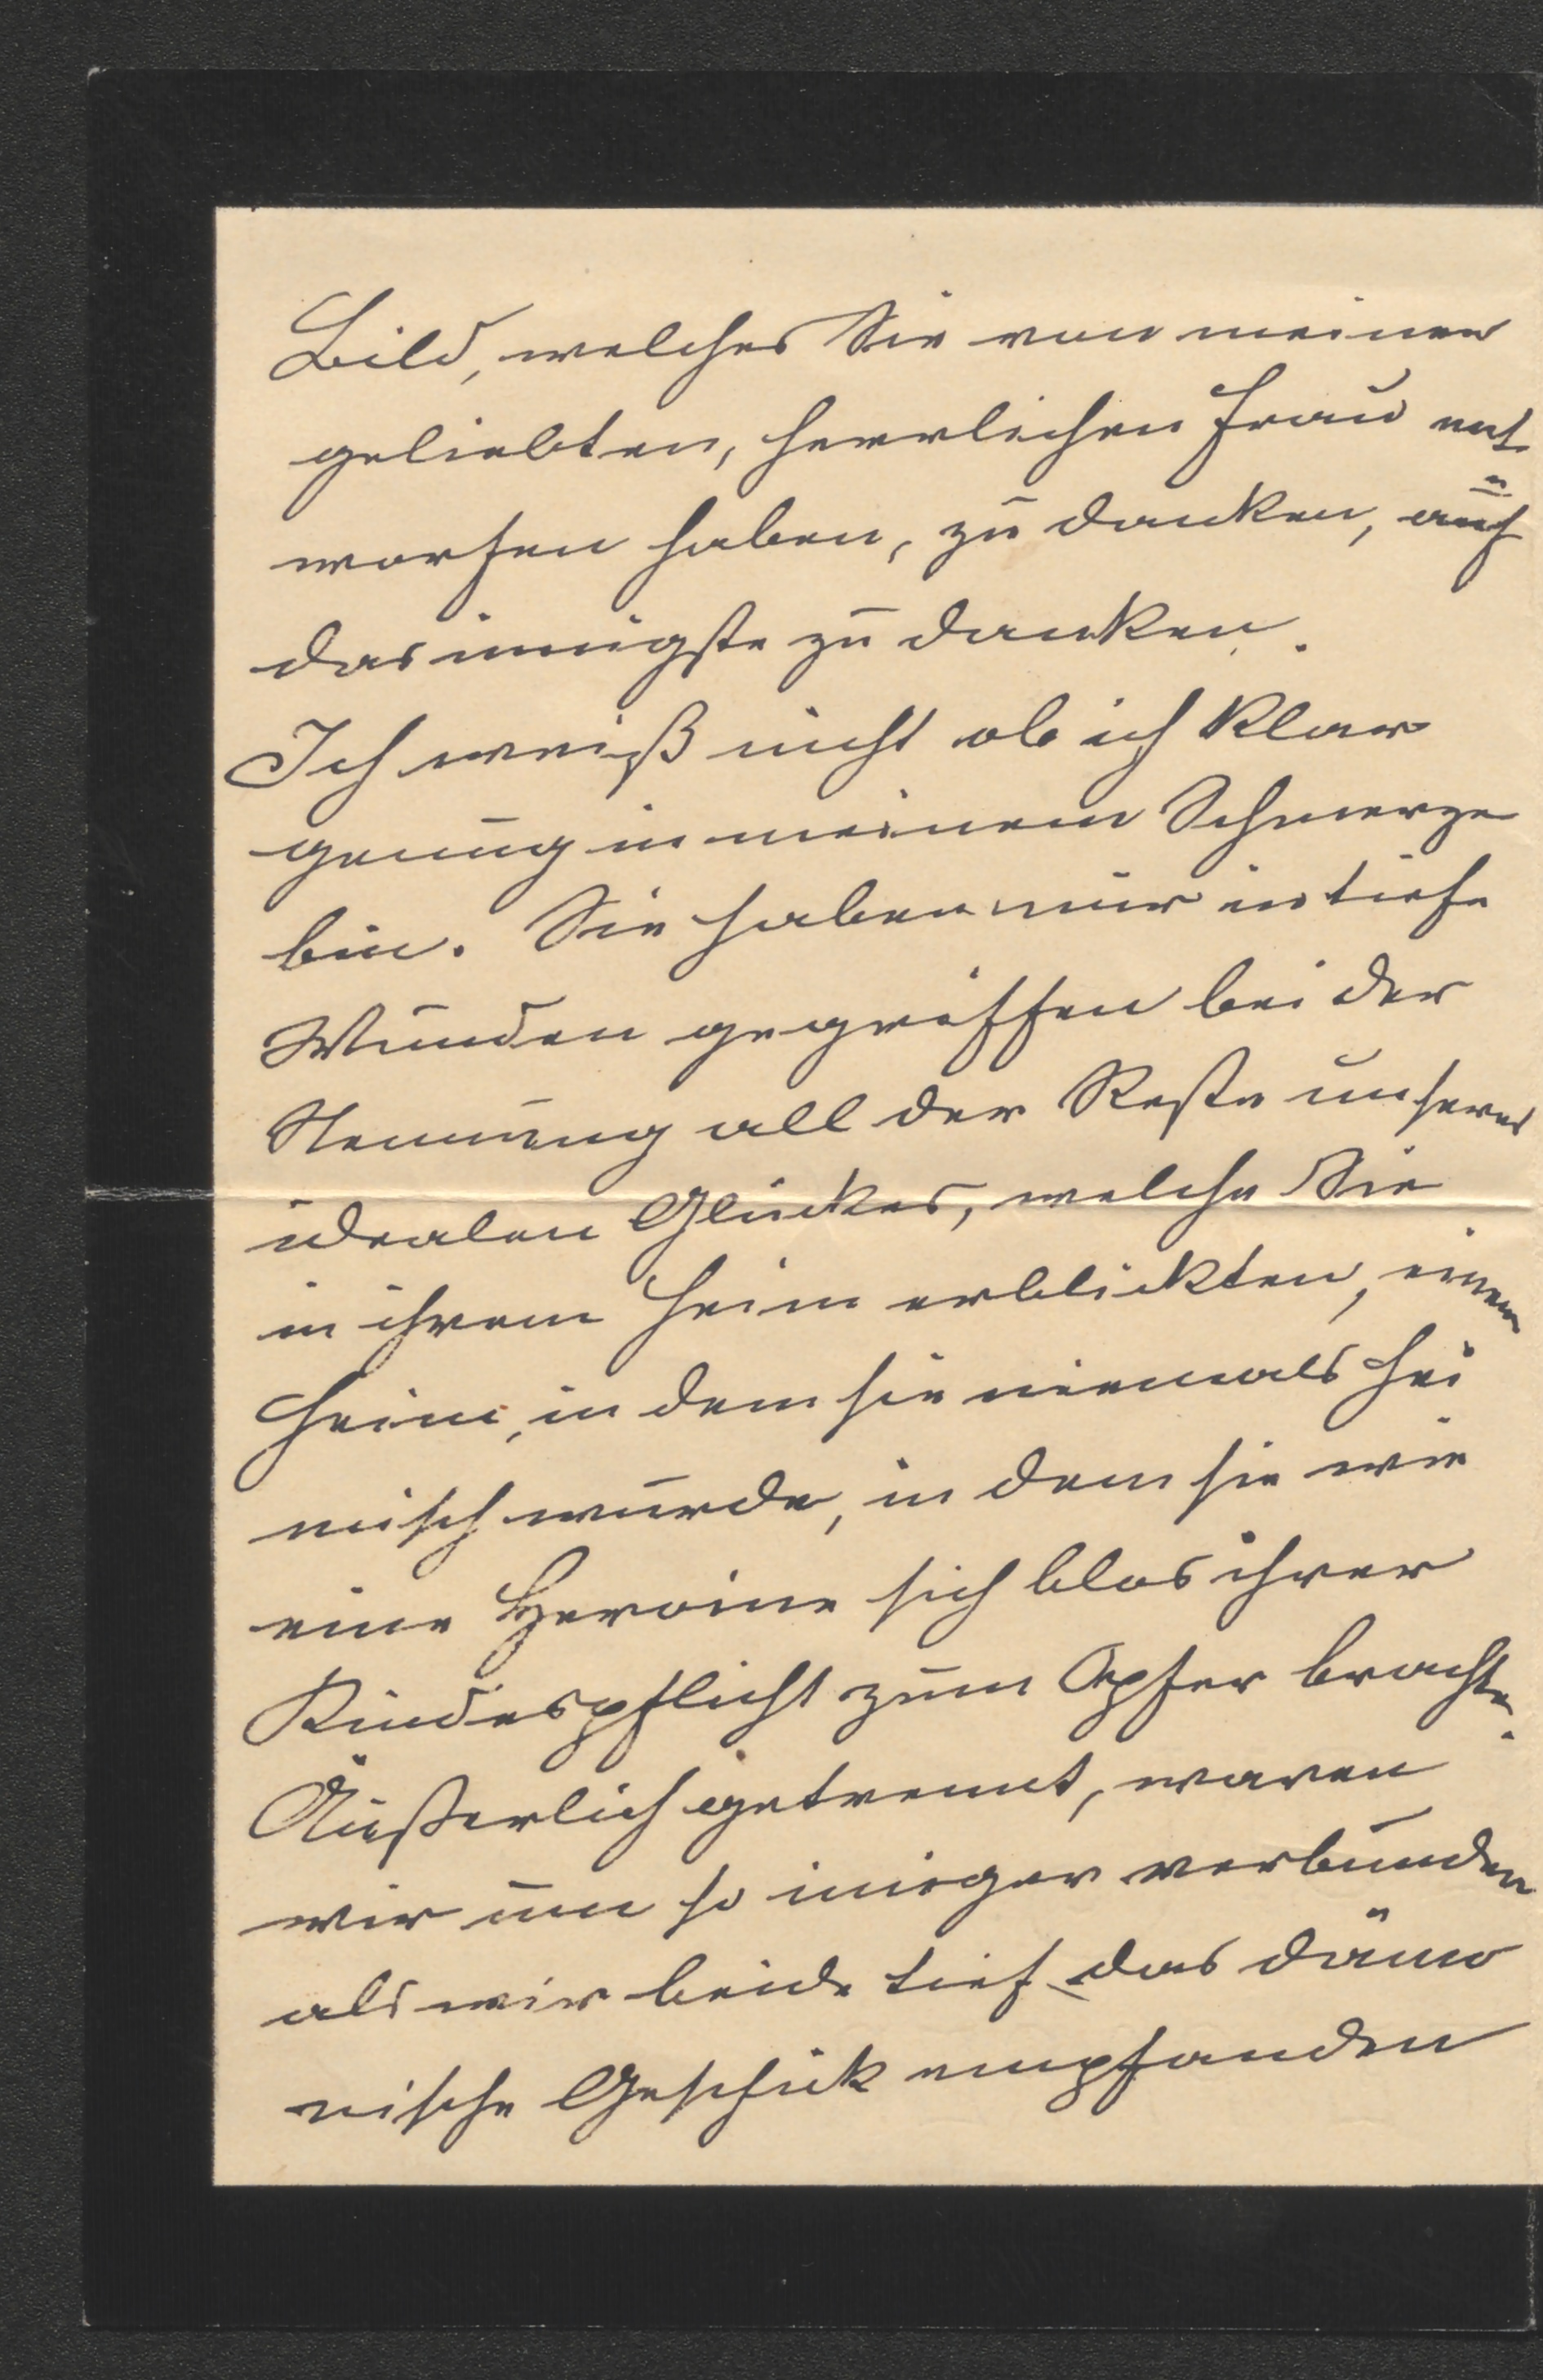 Bild, welches Sie von meiner
geliebten, herrlichen Frau ent-
worfen haben, zu danken, auf
das innigste zu danken.
Ich weiß nicht ob ich klar
genug in meinem Schmerze
bin. Sie haben mir in tiefe
Wunden gegriffen bei der
Nennung all der Reste unseres
idealen Glückes, welche Sie
in ihrem Heim erblickten, einem
Heim, in dem sie niemals hei
misch wurde, in dem sie wie
eine Heroine sich blos ihrer
Kindespflicht zum Opfer brachte.
Äußerlich getrennt, waren
wir um so inniger verbunden
als wir beide tief das dämo
nische Geschick empfanden